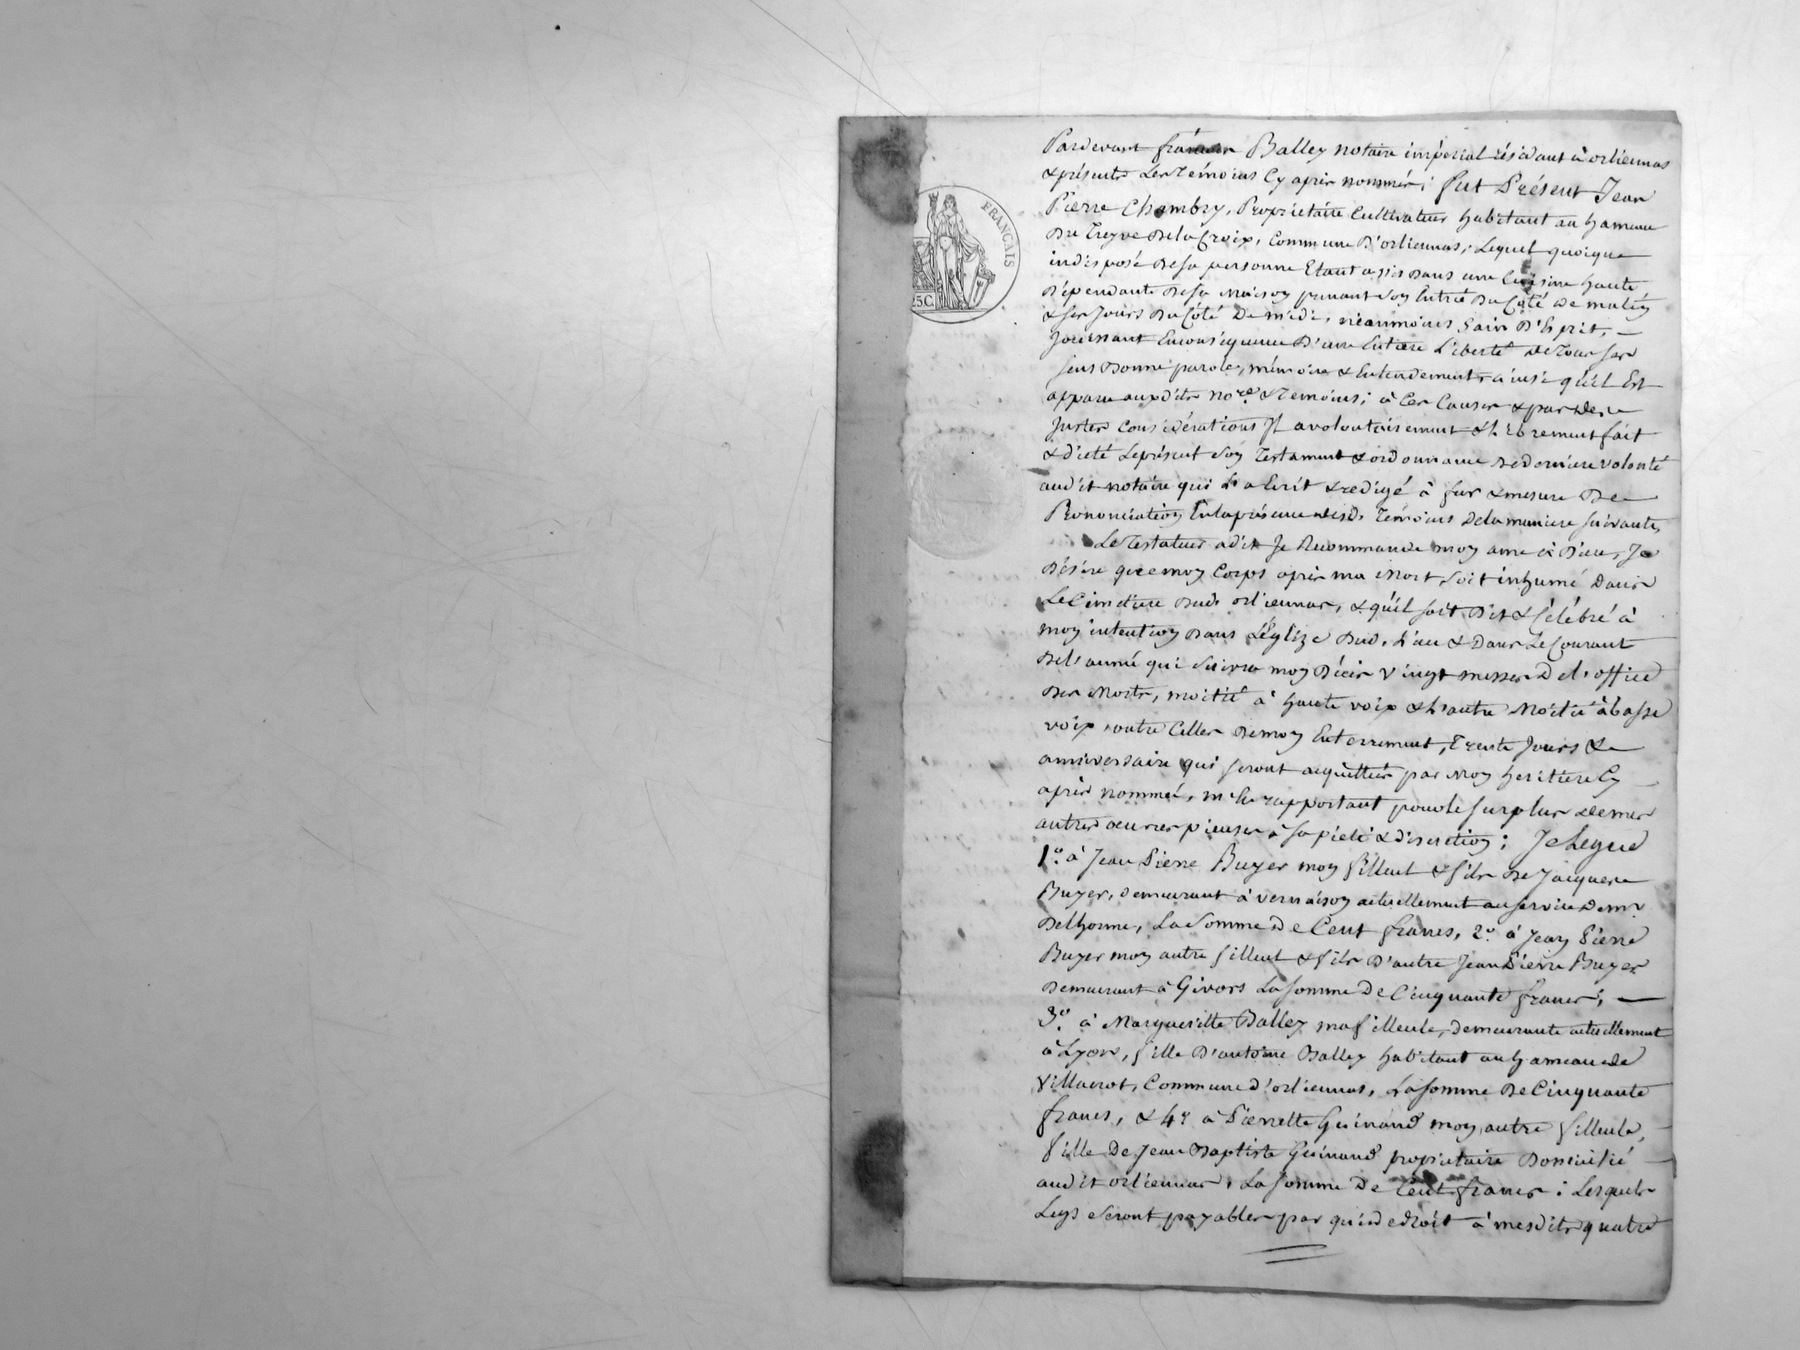 FRANÇAIS
25C.
Pardevant françois Balley notaire impérial résidant à orliennas
& présents les témoins Cy après nommés; fut Présent Jean
Pierre Chambry, Propriétaire Cultivateur habitant au hameau
Du Treyve De la Croix, Commune D'orliennas, Lequel quoique
indisposé De sa personne Etant assis Dans une Cuisine haute
Dépendante De sa Maison prenant Son Entrée Du Côté de matin
& ses jours Du Côté De midi, néanmoins Sain D'Esprit, —
jouissant En conséquence D'une Entière Liberté de tous ses
sens Bonne parole, mémoire & Entendement, ainsi qu'il Est
apparu auxdits no.re & Témoins; à Ces Causes & par de
justes Considérations Il a volontairement & Librement fait
& dicté Le présent Son Testament & ordonnance De dernière volonté
audit notaire qui L'a Ecrit & redigé à fur & mesure De
Prononciation En la présence desd. Témoins De la manière suivante,
Le Testateur a dit Je Recommande mon ame à Dieu, Je
Désire que mon Corps après ma Mort Soit inhumé Dans
Le Cimetière Dud. orliennas, & qu'il soit Dit & Célébré à
mon intention Dans L'Eglize Dud. Lieu & Dans Le Courant
De L'année qui Suivra mon Décès Vingt messes De L'office
Des Morts, moitié à haute voix & L'autre Moitié à basse
voix, outre Celles De mon Enterrement, Trente Jours &
anniversaire qui seront acquittées par Mon heritière Cy —
après nommée, m'En rapportant pour le surplus De mes
autres oeuvres pieuses à sa pieté & discretion; Je Legue
1.° à Jean Pierre Buyer mon filleul & fils De Jacques
Buyer, demeurant à Vernaison actuellement au service De mr.
Delhorme, La Somme De Cent francs, 2.° à Jean Pierre
Buyer mon autre filleul & fils D'autre Jean Pierre Buyer
Demeurant à Givors La somme De Cinquante francs, —
3.° à Margueritte Balley ma filleule, demeurante actuellement
à Lyon, fille D'antoine Balley habitant au hameau de
Villacrot, Commune d'orliennas, La somme De Cinquante
francs, & 4° à Pierrette Guinand mon autre filleule, —
fille De Jean Baptiste Guinand propriétaire Domicilié —
audit orliennas, La somme De Cent francs; Lesquels
Legs Seront payables par qui de droit à mesdits quatre